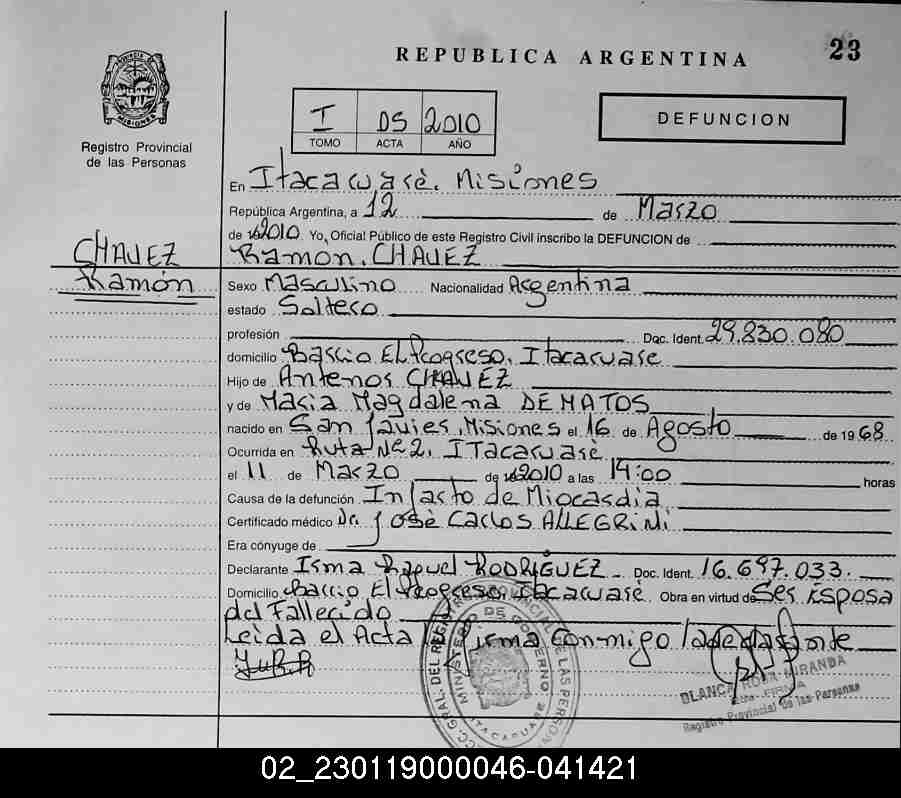 REPUBLICA ARGENTINA
23
PROVINCIA DE
MISIONES
Registro Provincial
de las Personas
I DS 2010
TOMO ACTA AÑO
DEFUNCION
En Itacaruaré. Misiones
República Argentina, a 12 de Marzo
de 2010. Yo, Oficial Público de este Registro Civil inscribo la DEFUNCION de
CHAVEZ
Ramón
Ramon. CHAVEZ
Sexo Masculino Nacionalidad Argentina
estado Soltero
profesión Doc. Ident. 29.830.080
domicilio Barrio El Progreso. Itacaruare
Hijo de Antenor CHAVEZ
y de Maria Magdalena DE MATOS
nacido en San Javier, Misiones el 16 de Agosto de 1968.
Ocurrida en Ruta Nº 2. ITacaruaré
el 11 de Marzo de 2010 a las 14:00 horas
Causa de la defunción Infarto de Miocardia
Certificado médico Dr. José Carlos ALLEGRINI
Era cónyuge de
Declarante Irma Raquel RODRIGUEZ Doc. Ident. 16.697.033.
Domicilio Barrio El Progreso, Itacaruaré Obra en virtud de Ser Esposa
del Fallecido
Leida el Acta la firma conmigo la declarante
GRAL. DEL REGISTRO PROVINCIAL DE LAS PERSONAS
MINISTERIO DE GOBIERNO
ITACARUARE
BLANCA ROSA MIRANDA
Registro Provincial de las Personas
02_230119000046-041421